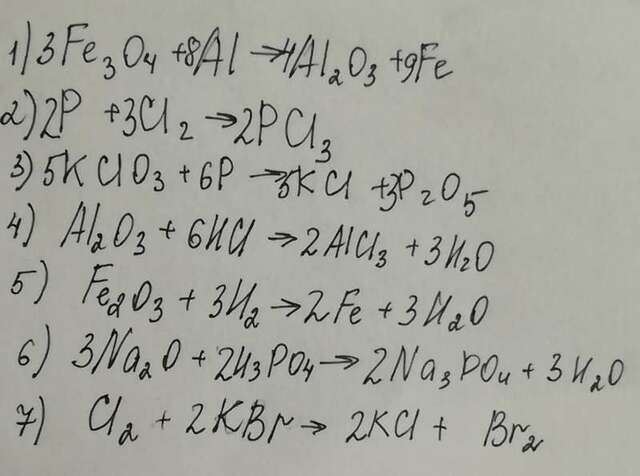 1) 3Fe₃O₄ + 8Al → 4Al₂O₃ + 9Fe
2) 2P + 3Cl₂ → 2PCl₃
3) 5KClO₃ + 6P → 5KCl + 3P₂O₅
4) Al₂O₃ + 6HCl → 2AlCl₃ + 3H₂O
5) Fe₂O₃ + 3H₂ → 2Fe + 3H₂O
6) 3Na₂O + 2H₃PO₄ → 2Na₃PO₄ + 3H₂O
7) Cl₂ + 2KBr → 2KCl + Br₂